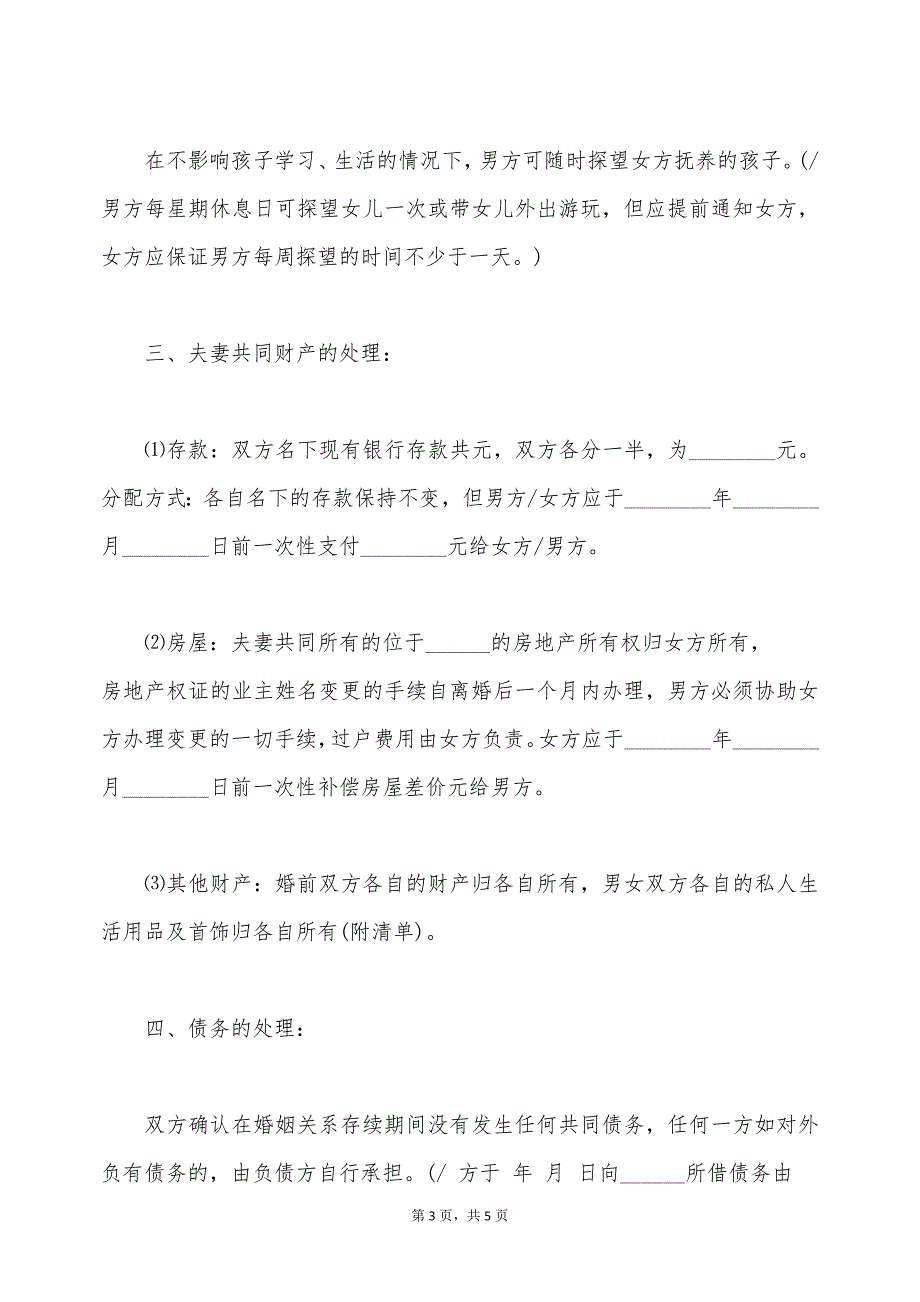 在不影响孩子学习、生活的情况下，男方可随时探望女方抚养的孩子。(/
男方每星期休息日可探望女儿一次或带女儿外出游玩，但应提前通知女方，
女方应保证男方每周探望的时间不少于一天。)
三、夫妻共同财产的处理：
⑴存款：双方名下现有银行存款共元，双方各分一半，为________元。
分配方式：各自名下的存款保持不变，但男方/女方应于________年________
月________日前一次性支付________元给女方/男方。
⑵房屋：夫妻共同所有的位于______的房地产所有权归女方所有，
房地产权证的业主姓名变更的手续自离婚后一个月内办理，男方必须协助女
方办理变更的一切手续，过户费用由女方负责。女方应于________年________
月________日前一次性补偿房屋差价元给男方。
⑶其他财产：婚前双方各自的财产归各自所有，男女双方各自的私人生
活用品及首饰归各自所有(附清单)。
四、债务的处理：
双方确认在婚姻关系存续期间没有发生任何共同债务，任何一方如对外
负有债务的，由负债方自行承担。(/ 方于 年 月 日向______所借债务由
第 3 页，共 5 页